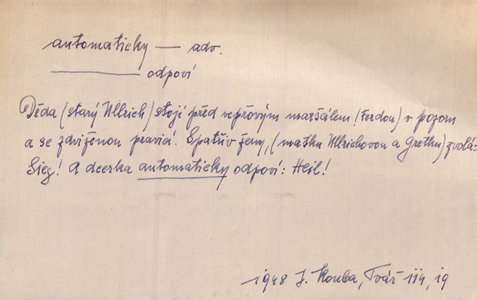 automaticky — adv.
———— odpoví
Děda (starý Ullrich) stojí před vepřovým maršálem (Ferdou) v pozoru
a se zdviženou pravicí. Spatřiv ženy, (matku Ullrichovou a Gretku) zvolá:
Sieg! A dcerka automaticky odpoví: Heil!
1948 J. Kouba, Tvář 114, 19